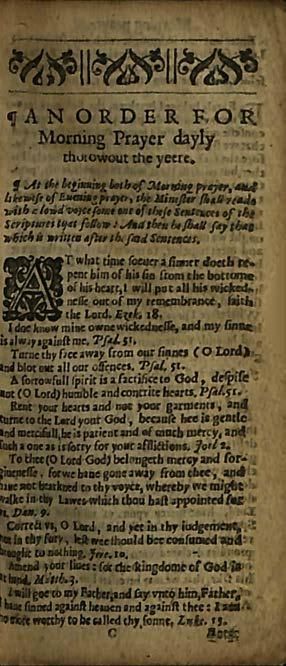 ¶ AN ORDER FOR
Morning Prayer dayly
thorowout the yeere.
¶ At the beginning both of Morning prayer, and
likewise of Euening prayer, the Minister shall reade
with a loud voice some one of these Sentences of the
Scriptures that follow: And then he shall say that
which is written after the said Sentences.
AT what time soeuer a sinner doeth re-
pent him of his sin from the bottome
of his heart, I will put all his wicked-
nesse out of my remembrance, saith
the Lord. Ezek. 18.
I doe know mine owne wickednesse, and my sinne
is alway against me, Psal. 51.
Turne thy face away from our sinnes (O Lord)
and blot out all our offences. Psal. 51.
A sorrowfull spirit is a sacrifice to God, despise
not (O Lord) humble and contrite hearts. Psal. 51.
Rent your hearts and not your garments, and
turne to the Lord your God, because hee is gentle
and mercifull, he is patient and of much mercy, and
such a one as is sorry for your afflictions. Joel 2.
To thee (O Lord God) belongeth mercy and for-
giuenesse, for we haue gone away from thee, and
haue not hearkned to thy voyce, whereby we might
walke in thy Lawes which thou hast appointed for
vs. Dan. 9.
Correct vs, O Lord, and yet in thy iudgement,
not in thy fury, lest wee should bee consumed and
brought to nothing, Jere. 10.
Amend your liues: for the kingdome of God is
at hand, Matth. 3.
I will goe to my Father, and say vnto him, Father,
I haue sinned against heauen and against thee: I am
no more worthy to be called thy sonne, Luke. 15.
C